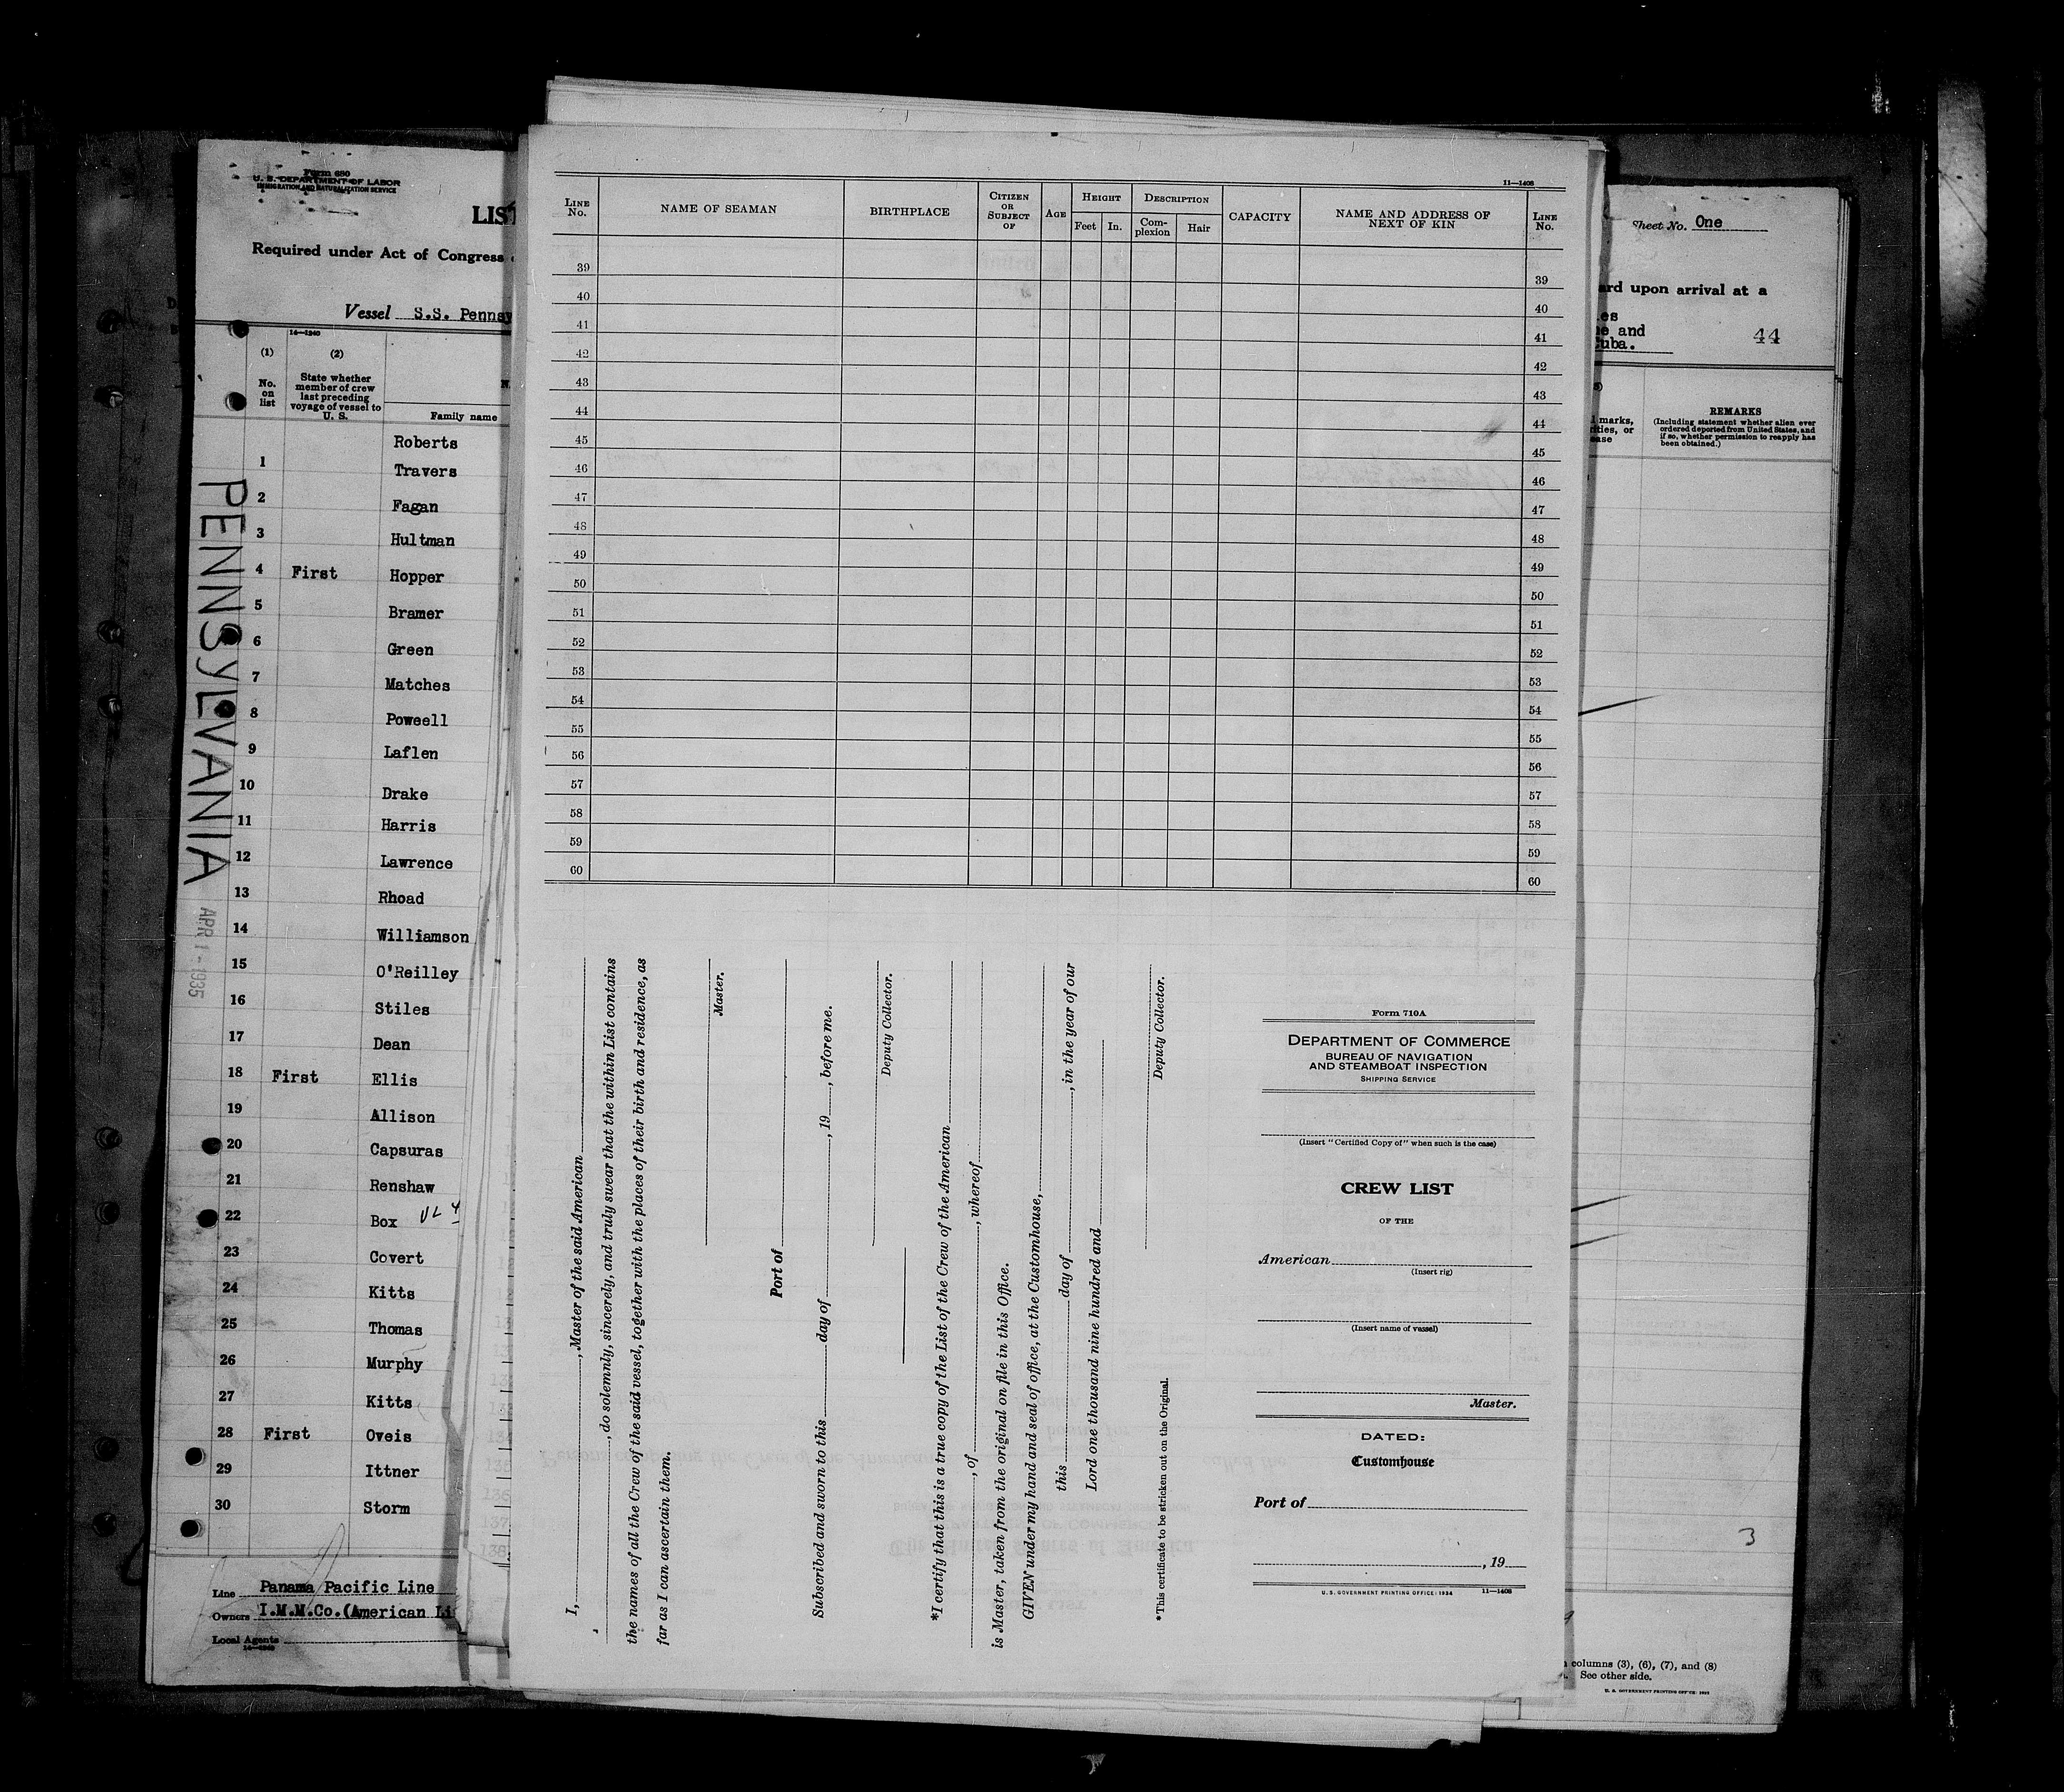 Form 680
U. S. DEPARTMENT OF LABOR
IMMIGRATION AND NATURALIZATION SERVICE
LIST
Required under Act of Congress
Vessel S.S. Pennsy
14—1240
(1)
No. on list
(2)
State whether member of crew last preceding voyage of vessel to U. S.
Family name
Roberts
1 Travers
2 Fagan
3 Hultman
4 First Hopper
5 Bramer
6 Green
7 Matches
8 Poweell
9 Laflen
10 Drake
11 Harris
12 Lawrence
13 Rhoad
14 Williamson
15 O'Reilley
16 Stiles
17 Dean
18 First Ellis
19 Allison
20 Capsuras
21 Renshaw
22 Box
23 Covert
24 Kitts
25 Thomas
26 Murphy
27 Kitts
28 First Oveis
29 Ittner
30 Storm
PENNSYLVANIA
APR 1 - 1935
Line Panama Pacific Line
Owners I.M.M.Co.(American Li
Local Agents
14—1240
11—1408
LINE No.
NAME OF SEAMAN
BIRTHPLACE
CITIZEN OR SUBJECT OF
AGE
HEIGHT
Feet In.
DESCRIPTION
Complexion Hair
CAPACITY
NAME AND ADDRESS OF NEXT OF KIN
LINE No.
39 39
40 40
41 41
42 42
43 43
44 44
45 45
46 46
47 47
48 48
49 49
50 50
51 51
52 52
53 53
54 54
55 55
56 56
57 57
58 58
59 59
60 60
I, , Master of the said American
, do solemnly, sincerely, and truly swear that the within List contains
the names of all the Crew of the said vessel, together with the places of their birth and residence, as
far as I can ascertain them.
Master.
Port of
Subscribed and sworn to this day of , 19 , before me.
Deputy Collector.
*I certify that this is a true copy of the List of the Crew of the American
, of , whereof
is Master, taken from the original on file in this Office.
GIVEN under my hand and seal of office, at the Customhouse,
this day of , in the year of our
Lord one thousand nine hundred and
Deputy Collector.
*This certificate to be stricken out on the Original.
Form 710A
DEPARTMENT OF COMMERCE
BUREAU OF NAVIGATION
AND STEAMBOAT INSPECTION
SHIPPING SERVICE
(Insert "Certified Copy of" when such is the case)
CREW LIST
OF THE
American
(Insert rig)
(Insert name of vessel)
Master.
DATED:
Customhouse
Port of
, 19
U. S. GOVERNMENT PRINTING OFFICE: 1934 11—1408
Sheet No. One
ard upon arrival at a
es
ne and
Cuba.
44
l marks,
rities, or
ease
REMARKS
(Including statement whether alien ever ordered deported from United States, and if so, whether permission to reapply has been obtained.)
3
columns (3), (6), (7), and (8)
See other side.
U. S. GOVERNMENT PRINTING OFFICE: 1932